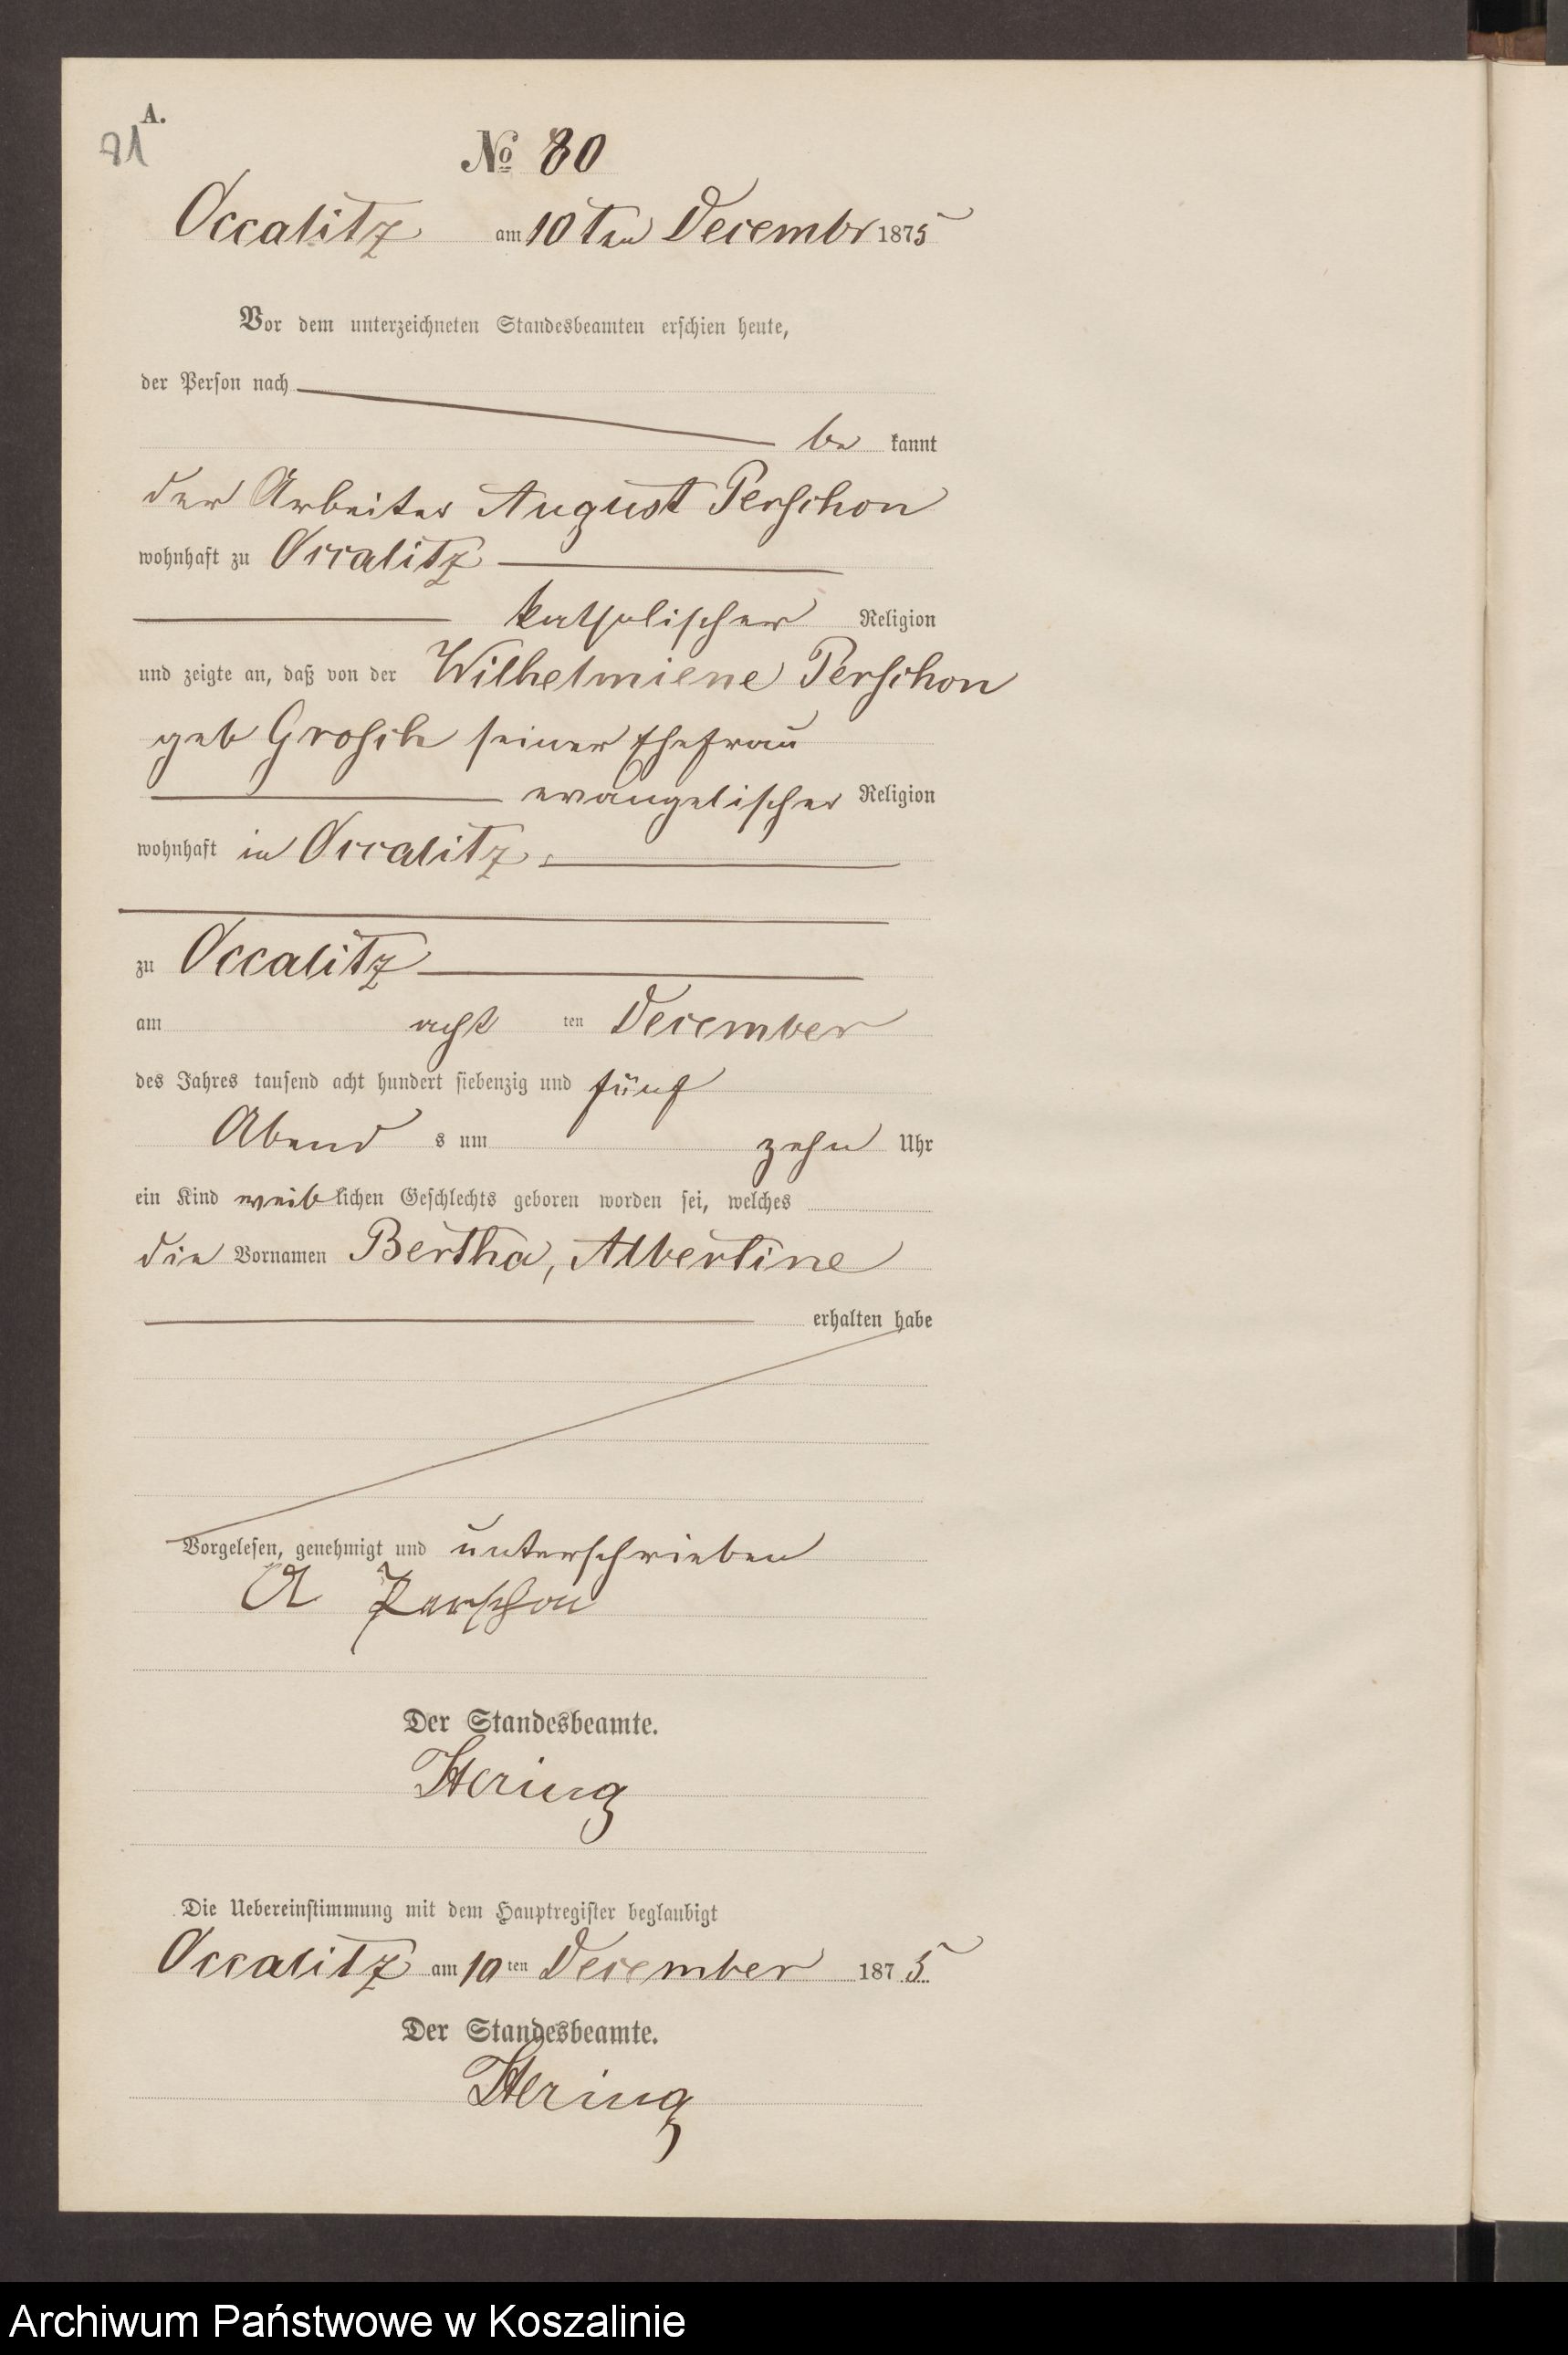 A.
81
No 80
Occalitz am 10ten Decembr 1875
Vor dem unterzeichneten Standesbeamten erschien heute,
der Person nach
be kannt
der Arbeiter August Perschon
wohnhaft zu Occalitz
katholischer Religion
und zeigte an, daß von der Wilhelmiene Perschon
geb Groschk seiner Ehefrau
evangelischer Religion
wohnhaft in Occalitz
zu Occalitz
am acht ten December
des Jahres tausend acht hundert siebenzig und fünf
Abend s um zehn Uhr
ein Kind weib lichen Geschlechts geboren worden sei, welches
die Vornamen Bertha, Albertine
erhalten habe
Vorgelesen, genehmigt und unterschrieben
A Perschon
Der Standesbeamte.
Hering
Die Uebereinstimmung mit dem Hauptregister beglaubigt
Occalitz am 10 ten December 187 5
Der Standesbeamte.
Hering
Archiwum Państwowe w Koszalinie